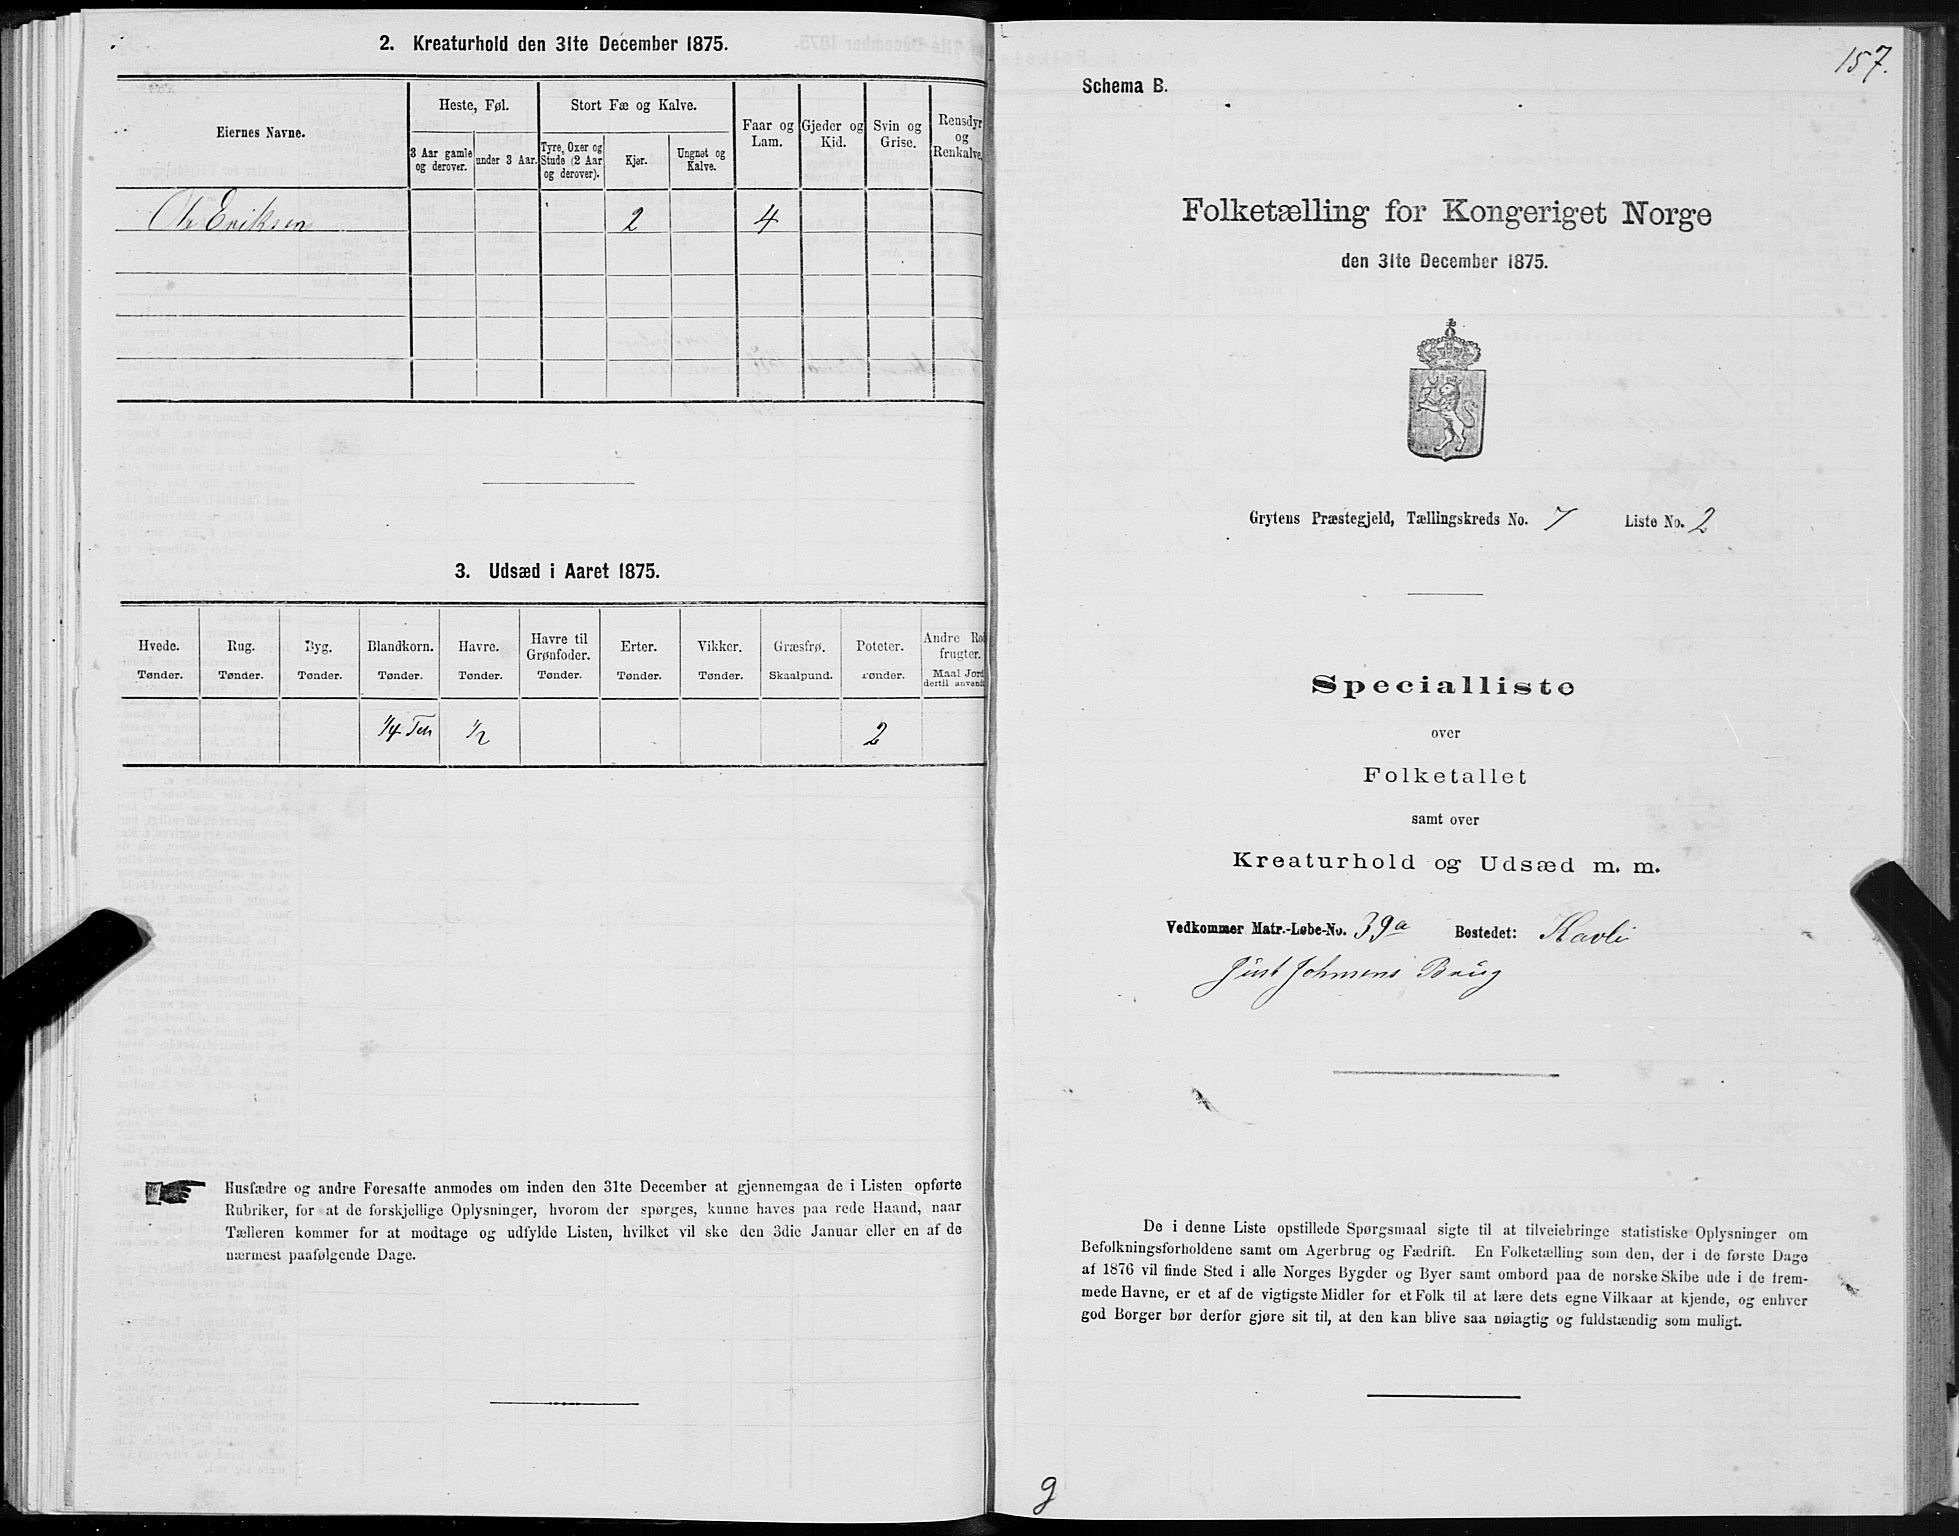 2. Kreaturhold den 31te December 1875.
Eiernes Navne.
Heste, Føl.
Stort Fæ og Kalve.
Faar og Lam.
Gjeder og Kid.
Svin og Grise.
Rensdyr og Renkalve.
3 Aar gamle og derover.
under 3 Aar.
Tyre, Oxer og Stude (2 Aar og derover).
Kjør.
Ungnøt og Kalve.
Ole Eriksen 2 4
3. Udsæd i Aaret 1875.
Hvede. Rug. Byg. Blandkorn. Havre. Havre til Grønfoder. Erter. Vikker. Græsfrø. Poteter. Andre Rodfrugter.
Tønder. Tønder. Tønder. Tønder. Tønder. Tønder. Tønder. Tønder. Skaalpund. Tønder. Maal Jord dertil anvendt
1/4 1/2 2
Husfædre og andre Foresatte anmodes om inden den 31te December at gjennemgaa de i Listen opførte
Rubriker, for at de forskjellige Oplysninger, hvorom der spørges, kunne haves paa rede Haand, naar
Tælleren kommer for at modtage og udfylde Listen, hvilket vil ske den 3die Januar eller en af de
nærmest paafølgende Dage.
157.
Schema B.
Folketælling for Kongeriget Norge
den 31te December 1875.
Grytens Præstegjeld, Tællingskreds No. 7 Liste No. 2
Specialliste
over
Folketallet
samt over
Kreaturhold og Udsæd m. m.
Vedkommer Matr.-Løbe-No. 39a Bostedet: Havli
Brug
De i denne Liste opstillede Spørgsmaal sigte til at tilveiebringe statistiske Oplysninger om
Befolkningsforholdene samt om Agerbrug og Fædrift. En Folketælling som den, der i de første Dage
af 1876 vil finde Sted i alle Norges Bygder og Byer samt ombord paa de norske Skibe ude i de frem-
mede Havne, er et af de vigtigste Midler for et Folk til at lære dets egne Vilkaar at kjende, og enhver
god Borger bør derfor gjøre sit til, at den kan blive saa nøiagtig og fuldstændig som muligt.
g